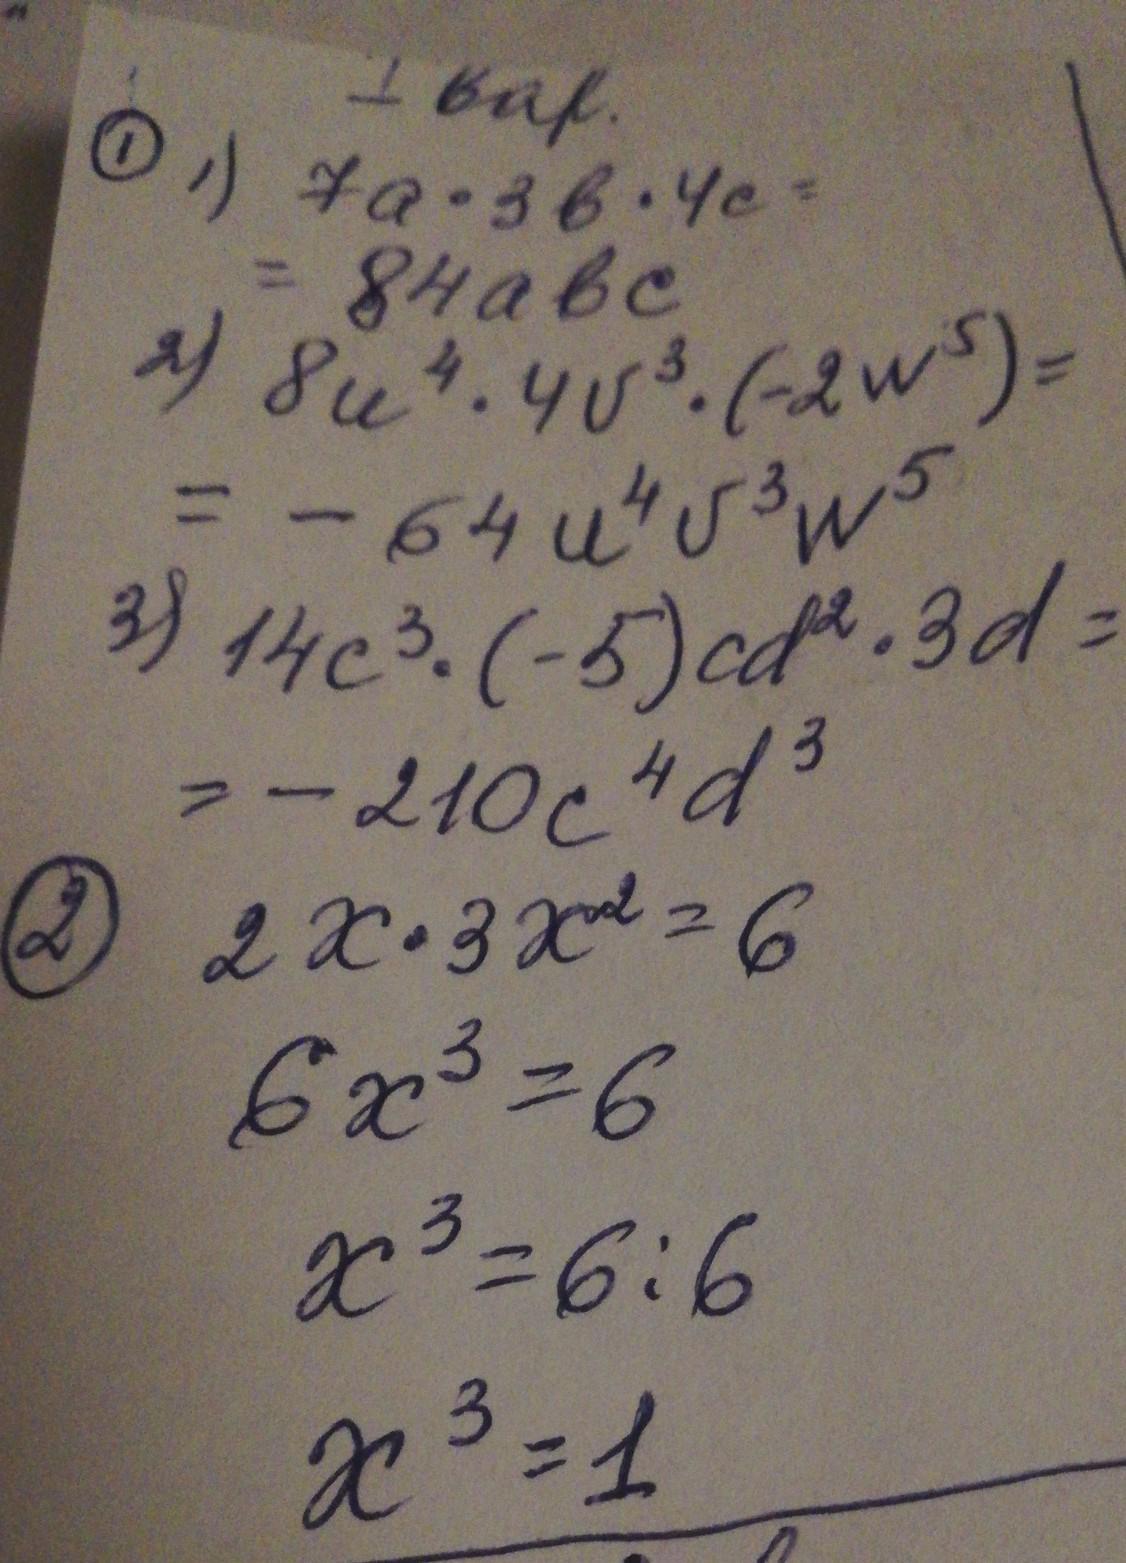 1 вар.
① 1) 7a·3b·4c=
= 84abc
2) 8u⁴·4v³·(-2w⁵)=
= - 64u⁴v³w⁵
3) 14c³·(-5)cd²·3d=
= - 210c⁴d³
② 2x·3x²=6
6x³=6
x³=6:6
x³=1